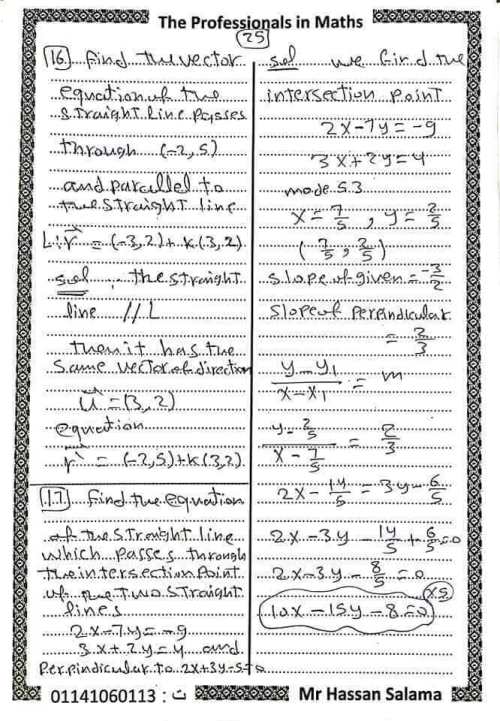 The Professionals in Maths
25
16. Find the vector
equation of the
straight line passes
through (-2,5)
and parallel to
the straight line
L: r = (-3,2)+k(3,2)
sol : the straight
line // L
then it has the
same vector of direction
u = (3,2)
equation
r = (-2,5)+k(3,2)
17. Find the equation
of the straight line
which passes through
the intersection point
of the two straight
lines
2x-7y=-9
3x+2y=4 and
perpindicular to 2x+3y-5=0
sol we find the
intersection point
2x-7y=-9
3x+2y=4
mode 5.3
x=7/5, y=2/5
(7/5, 2/5)
slope of given = -3/2
slope of perpindicular
= 2/3
y-y1/x-x1 = m
y-2/5/x-7/5 = 2/3
2x-14/5=3y-6/5
2x-3y-14/5+6/5=0
2x-3y-8/5=0
x5
10x-15y-8=0
01141060113 : ت
Mr Hassan Salama